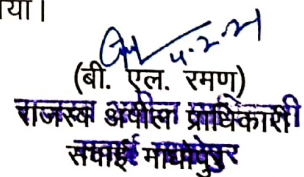 या।
4.2.21
(बी. एल. रमण)
राजस्व अपील प्राधिकारी
सवाई माधोपुर